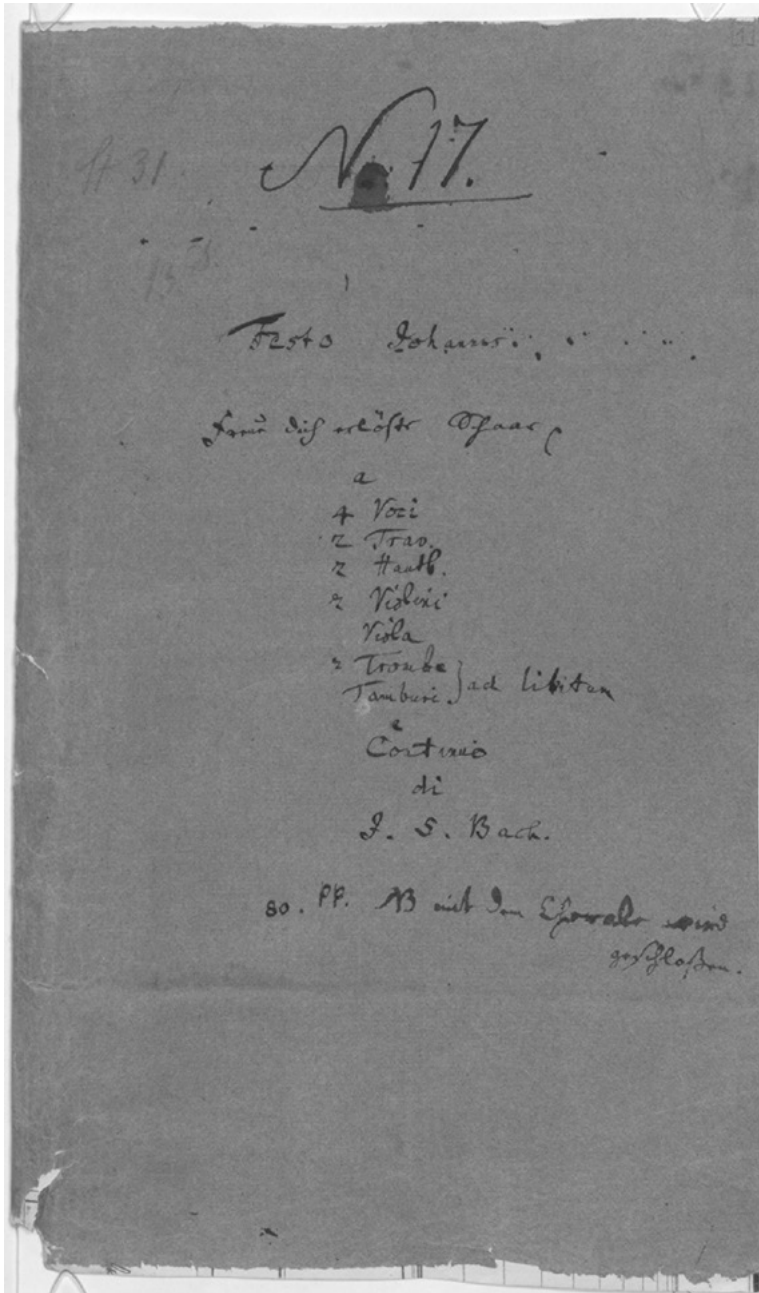 [1]
St 31
No. 17.
Festo Johannis
Freue dich erlöste Schaar
a
4 Voci
2 Trav.
2 Hautb.
2 Violini
Viola
2 Trombe
Tamburi. } ad libitum
e
Continuo
di
J. S. Bach.
80. PP. NB mit dem Chorale wird
geschloßen.